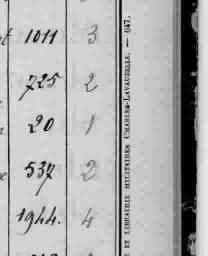 1011 3
725 2
20 1
537 2
1944. 4
ET LIBRAIRIE MILITAIRES CHARLES-LAVAUZELLE. — 647.